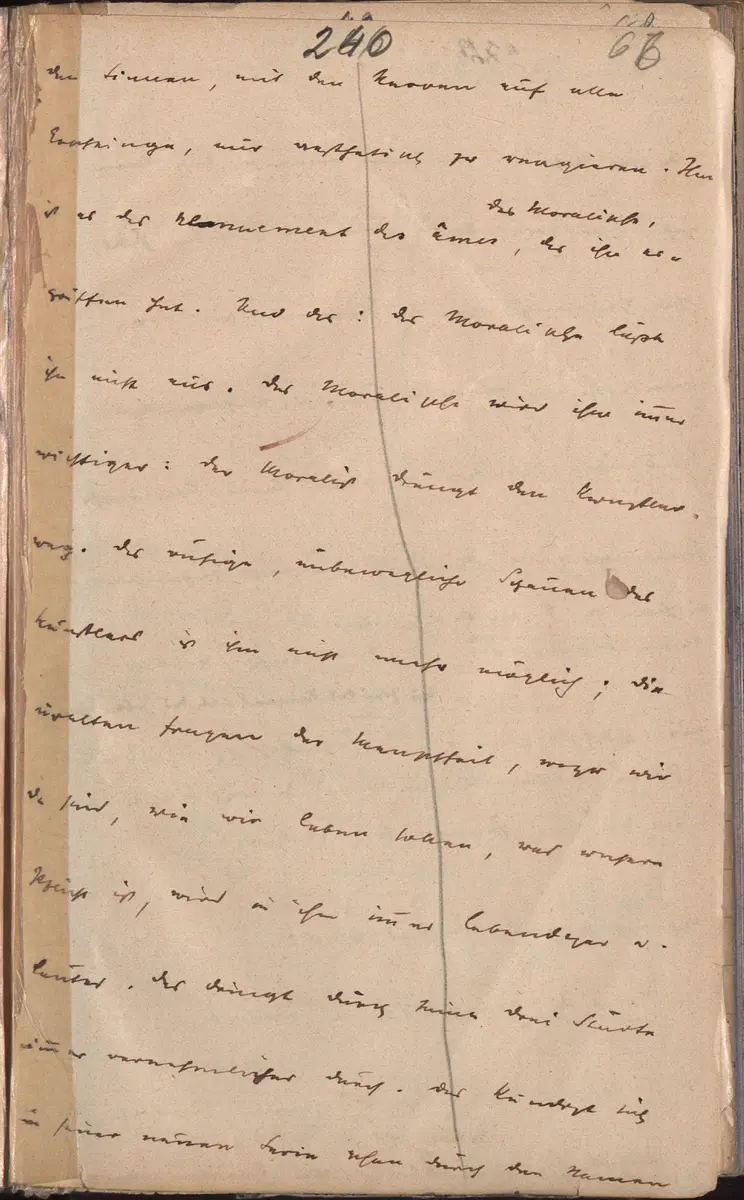 240 66
den Sinnen, mit den Nerven auf alle
Ereignisse, nur aesthetisch zu reagieren. Nun
das Moralische,
ist es der remuement des âmes, das ihn er-
griffen hat. Und das: das Moralische läßt
ihn nicht aus. Das Moralische wird ihm immer
wichtiger: der Moralist drängt den Künstler
weg. Das ruhige, unbewegliche Schauen des
Künstlers ist ihm nicht mehr möglich; die
uralten Fragen der Menschheit, wozu wir
da sind, wie wir leben sollen, was unsere
Pflicht ist, wird in ihm immer lebendiger u.
lauter. Das dringt durch seine drei Stücke
immer vernehmlicher durch. Das kündigt sich
in seiner neuen Serie schon durch den Namen